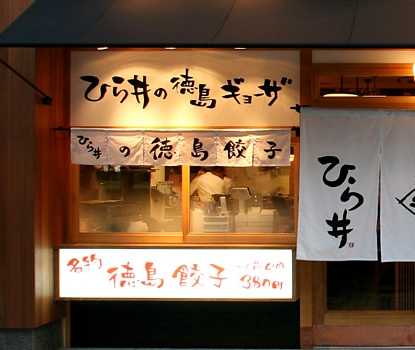 ひら井の徳島ギョーザ
ひら井の徳島餃子
ひら井
名物 徳島餃子
380円